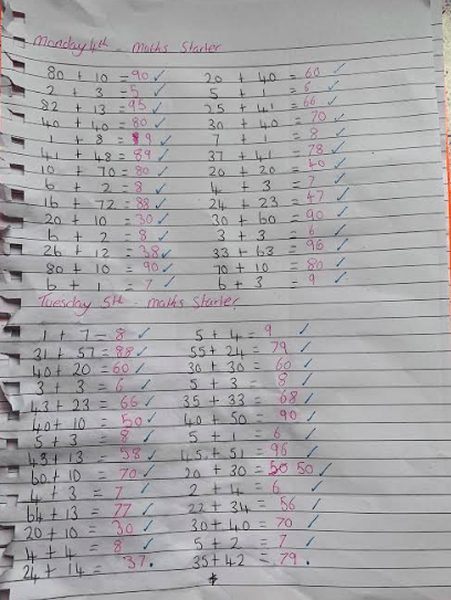 Monday 4th - maths Starter
80 + 10 = 90 ✓ 20 + 40 = 60 ✓
2 + 3 = 5 ✓ 5 + 1 = 6 ✓
82 + 13 = 95 ✓ 25 + 41 = 66 ✓
40 + 40 = 80 ✓ 30 + 40 = 70 ✓
+ 8 = 9 ✓ 7 + 1 = 8 ✓
41 + 48 = 89 ✓ 37 + 41 = 78 ✓
10 + 70 = 80 ✓ 20 + 20 = 40 ✓
6 + 2 = 8 ✓ 4 + 3 = 7 ✓
16 + 72 = 88 ✓ 24 + 23 = 47 ✓
20 + 10 = 30 ✓ 30 + 60 = 90 ✓
6 + 2 = 8 ✓ 3 + 3 = 6 ✓
26 + 12 = 38 ✓ 33 + 63 = 96 ✓
80 + 10 = 90 ✓ 70 + 10 = 80 ✓
6 + 1 = 7 ✓ 6 + 3 = 9 ✓
Tuesday 5th - maths Starter
1 + 7 = 8 ✓ 5 + 4 = 9 ✓
31 + 57 = 88 ✓ 55 + 24 = 79 ✓
40 + 20 = 60 ✓ 30 + 30 = 60 ✓
3 + 3 = 6 ✓ 5 + 3 = 8 ✓
43 + 23 = 66 ✓ 35 + 33 = 68 ✓
40 + 10 = 50 ✓ 40 + 50 = 90 ✓
5 + 3 = 8 ✓ 5 + 1 = 6 ✓
45 + 51 = 96 ✓
60 + 10 = 70 ✓ 20 + 30 = 50 50 ✓
4 + 3 = 7 ✓ 2 + 4 = 6 ✓
64 + 13 = 77 ✓ 22 + 34 = 56 ✓
20 + 10 = 30 ✓ 30 + 40 = 70 ✓
4 + 4 = 8 ✓ 5 + 2 = 7 ✓
24 + 14 = 37 . 35 + 42 = 79 .